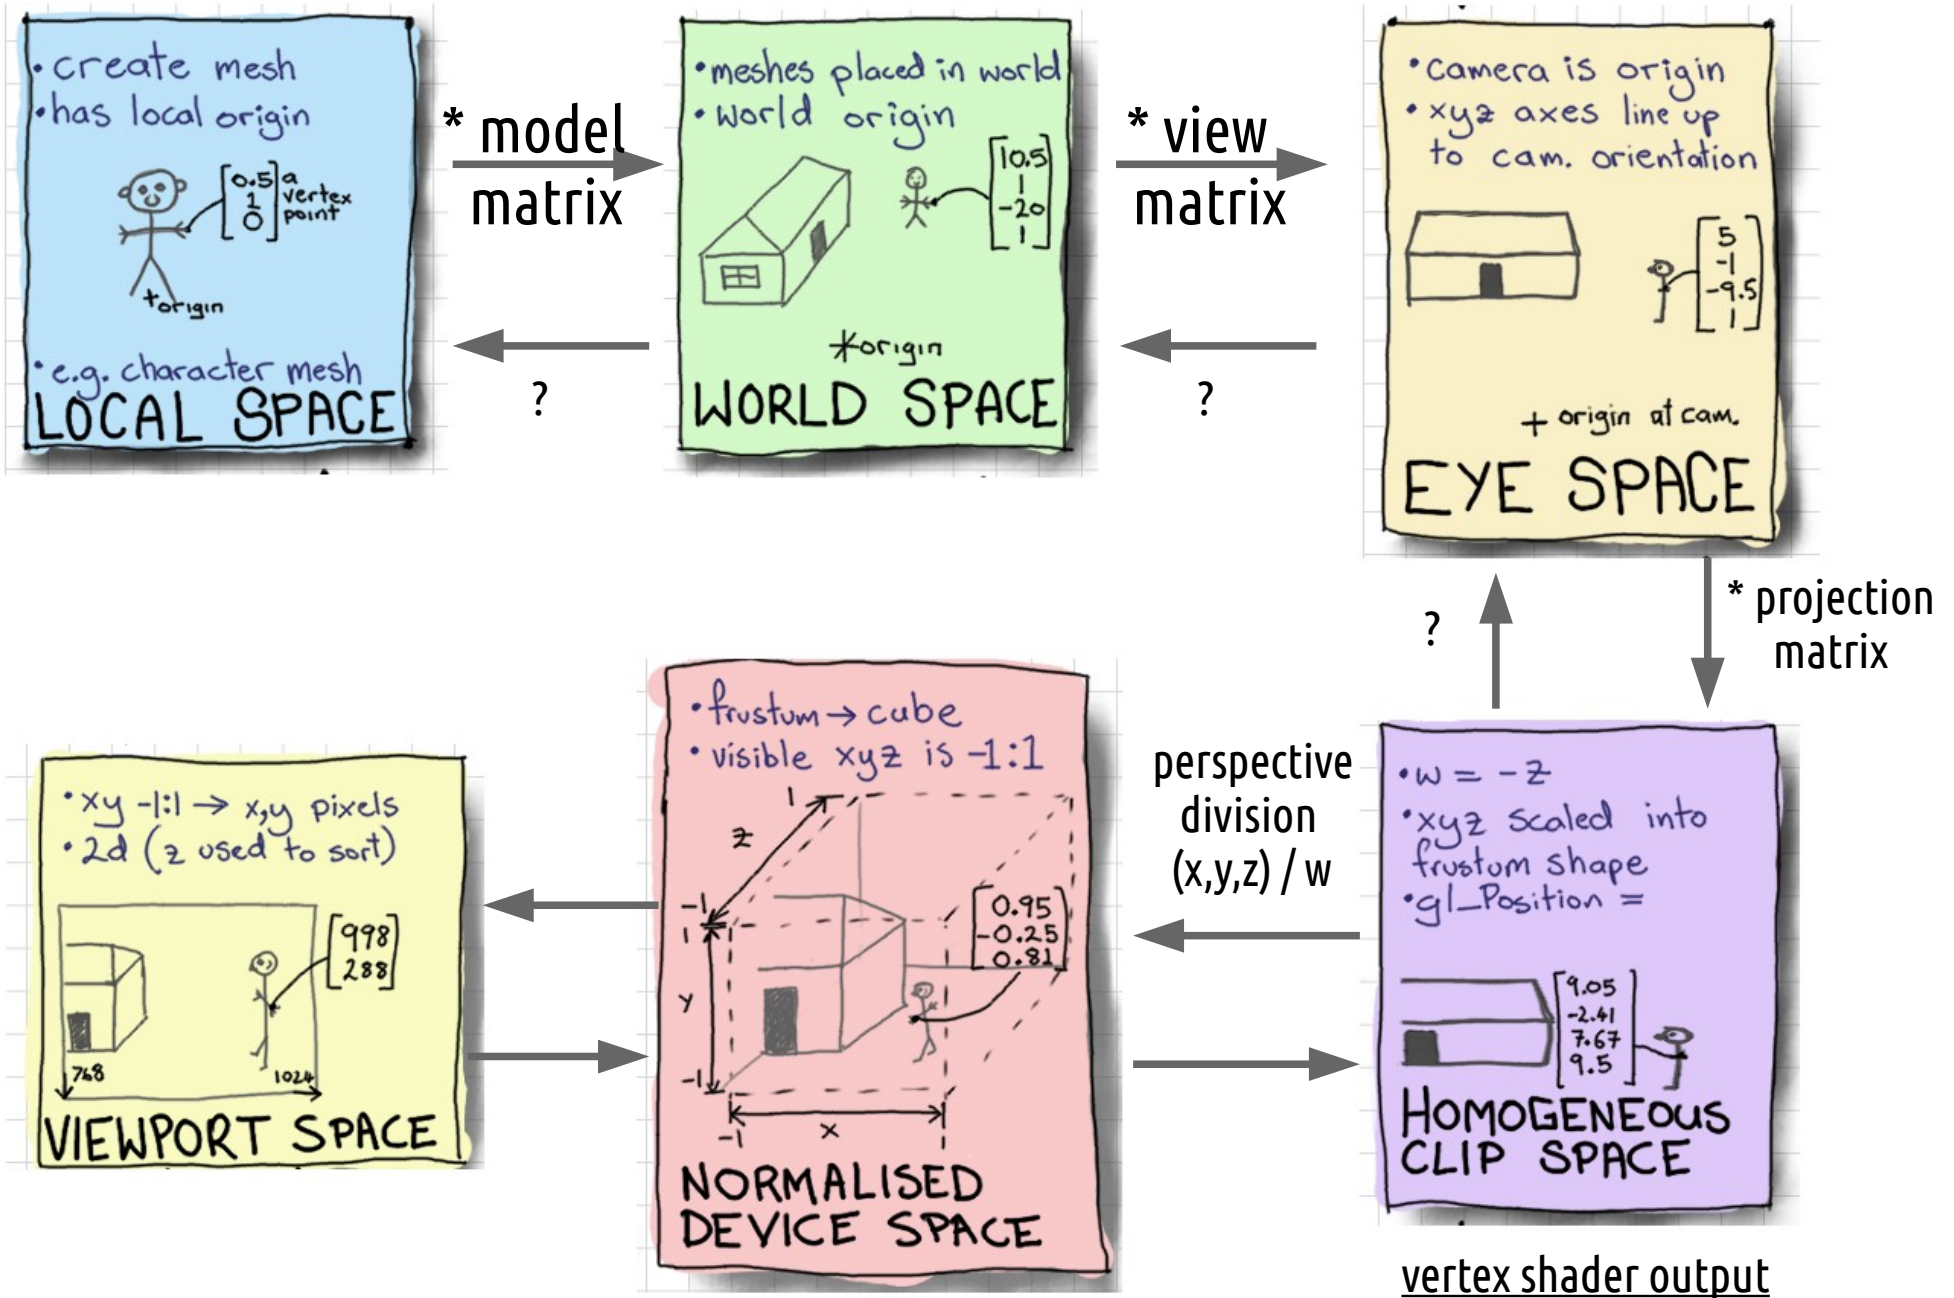 • create mesh
• has local origin
[0.5
1
0]
a
vertex
point
+origin
• e.g. character mesh
LOCAL SPACE
* model
matrix
?
• meshes placed in world
• world origin
[10.5
1
-20
1]
*origin
WORLD SPACE
* view
matrix
?
• camera is origin
• xyz axes line up
to cam. orientation
[5
-1
-9.5
1]
+ origin at cam.
EYE SPACE
?
* projection
matrix
• w = -z
• xyz scaled into
frustum shape
• gl_Position =
[9.05
-2.41
7.67
9.5]
HOMOGENEOUS
CLIP SPACE
vertex shader output
perspective
division
(x,y,z) / w
• frustum → cube
• visible xyz is -1:1
1
z
-1
1
y
-1
-1
x
1
[0.95
-0.25
0.81]
NORMALISED
DEVICE SPACE
• xy -1:1 → x,y pixels
• 2d (z used to sort)
[998
288]
768
1024
VIEWPORT SPACE